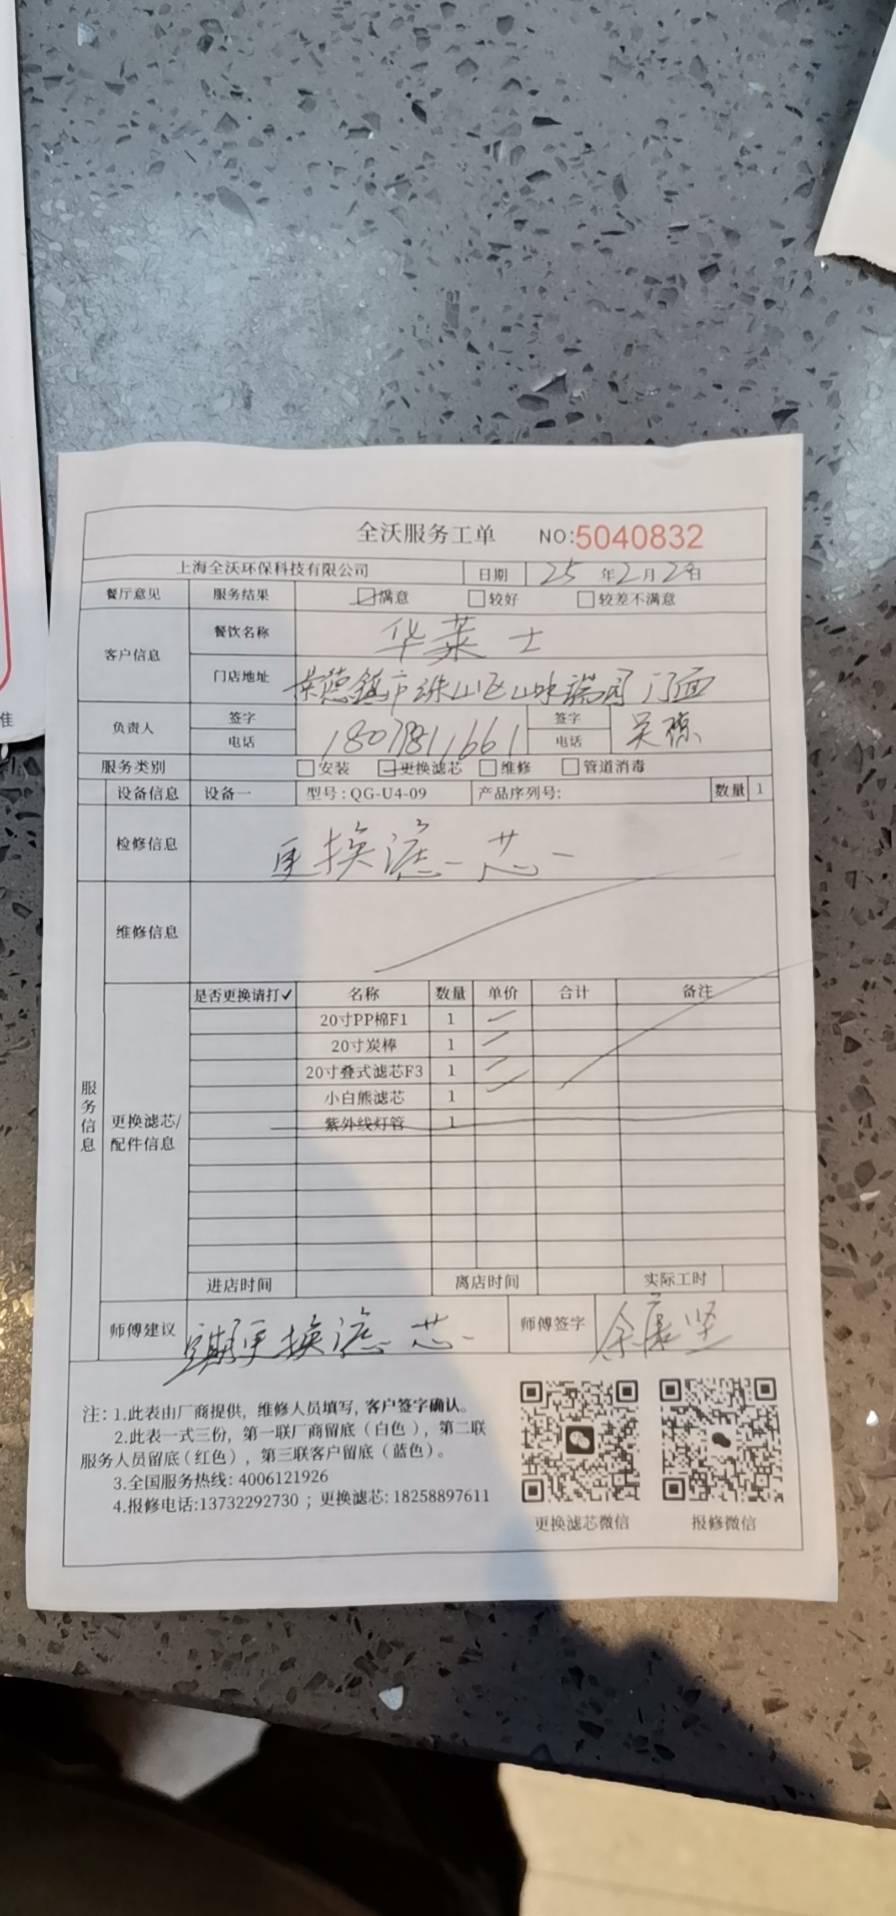 全沃服务工单 NO:5040832
上海全沃环保科技有限公司 日期 25年2月28日
餐厅意见 服务结果 满意 较好 较差不满意
客户信息 餐饮名称 华莱士
门店地址 景德镇市珠山区 门面
负责人 签字 签字 吴
电话 电话
服务类别 安装 更换滤芯 维修 管道消毒
设备信息 设备一 型号:QG-U4-09 产品序列号: 数量 1
检修信息 更换滤芯
维修信息
是否更换请打✓ 名称 数量 单价 合计 备注
20寸PP棉F1 1
20寸炭棒 1
20寸叠式滤芯F3 1
小白熊滤芯 1
紫外线灯管 1
服务信息
更换滤芯/
配件信息
进店时间 离店时间 实际工时
师傅建议 定期更换滤芯 师傅签字 余
注: 1.此表由厂商提供, 维修人员填写, 客户签字确认。
2.此表一式三份, 第一联厂商留底(白色), 第二联
服务人员留底(红色), 第三联客户留底(蓝色)。
3.全国服务热线: 4006121926
4.报修电话:13732292730 ; 更换滤芯: 18258897611
更换滤芯微信 报修微信
准